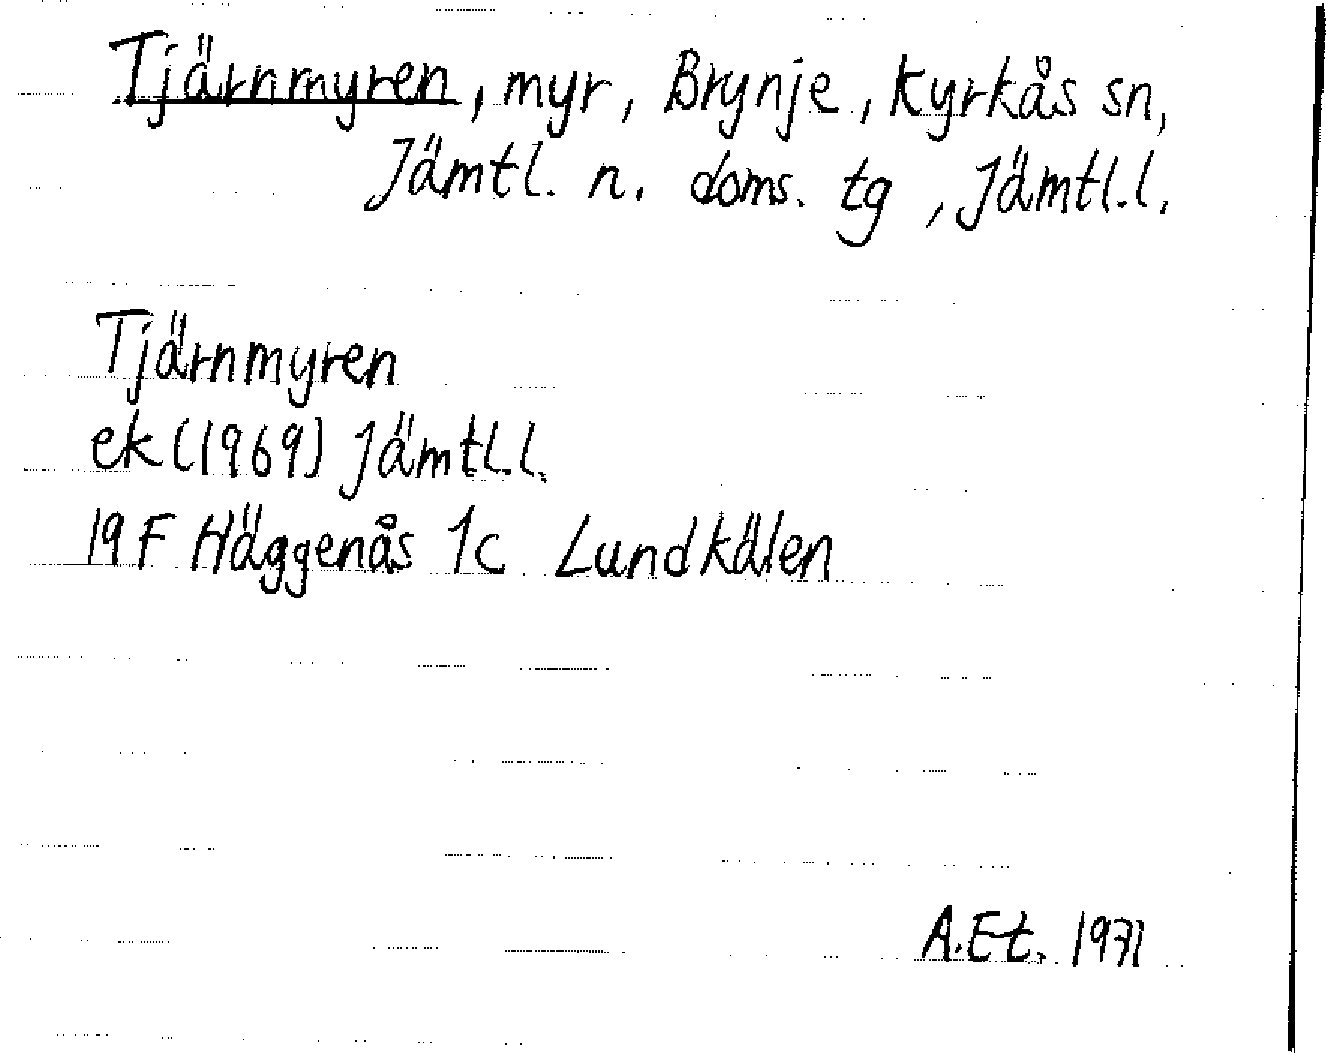 Tjärnmyren, myr, Brynje, Kyrkås sn,
Jämtl. n. doms. tg, Jämtl.l.
Tjärnmyren
ek (1969) Jämtl.l.
19 F Häggenås 1c Lundkälen
A.Et. 1971